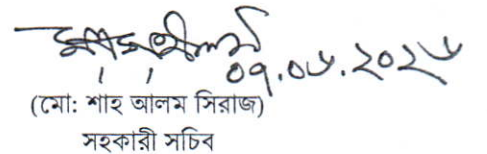 ০৭.০৬.২০২৬
(মো: শাহ আলম সিরাজ)
সহকারী সচিব